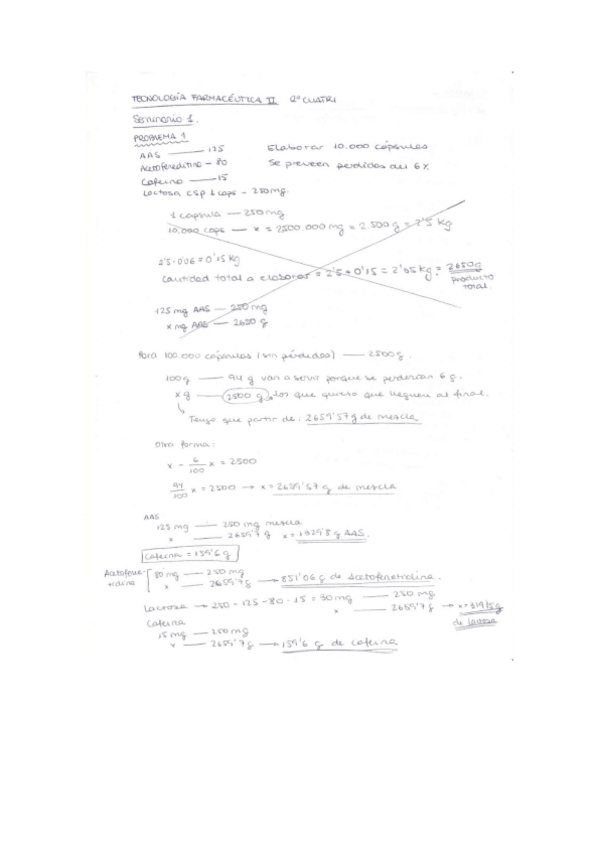 TECNOLOGÍA FARMACÉUTICA II 2º CUATRI
Seminario 1.
PROBLEMA 1
AAS — 125 Elaborar 10.000 cápsulas
Acetofenetidina - 80 Se preveen perdidas del 6%
Cafeína — 15
Lactosa csp 1 caps - 250 mg.
1 capsula — 250 mg
10.000 caps — x = 2500.000 mg = 2.500 g = 2'5 kg
2'5 · 0'06 = 0'15 kg
Cantidad total a elaborar = 2'5 + 0'15 = 2'65 kg = 2650 g
producto total.
125 mg AAS — 250 mg
x mg AAS — 2650 g
Para 100.000 cápsulas (sin pérdidas) — 2500 g.
100 g — 94 g van a servir porque se perderían 6 g.
x g — 2500 g, los que quiero que lleguen al final.
Tengo que partir de: 2659'57 g de mezcla
Otra forma:
x - 6/100 x = 2500
94/100 x = 2500 → x = 2659'57 g de mezcla
AAS
125 mg — 250 mg mezcla
x — 2659'7 g x = 1329'8 g AAS.
Cafeína = 159'6 g
Acetofene-tidina
80 mg — 250 mg
x — 2659'7 g → 851'06 g de Acetofenetidina.
Lactosa → 250 - 125 - 80 - 15 = 30 mg — 250 mg
x — 2659'7 g → x = 319'15 g
de lactosa
Cafeína
15 mg — 250 mg
x — 2659'7 g → 159'6 g de cafeína